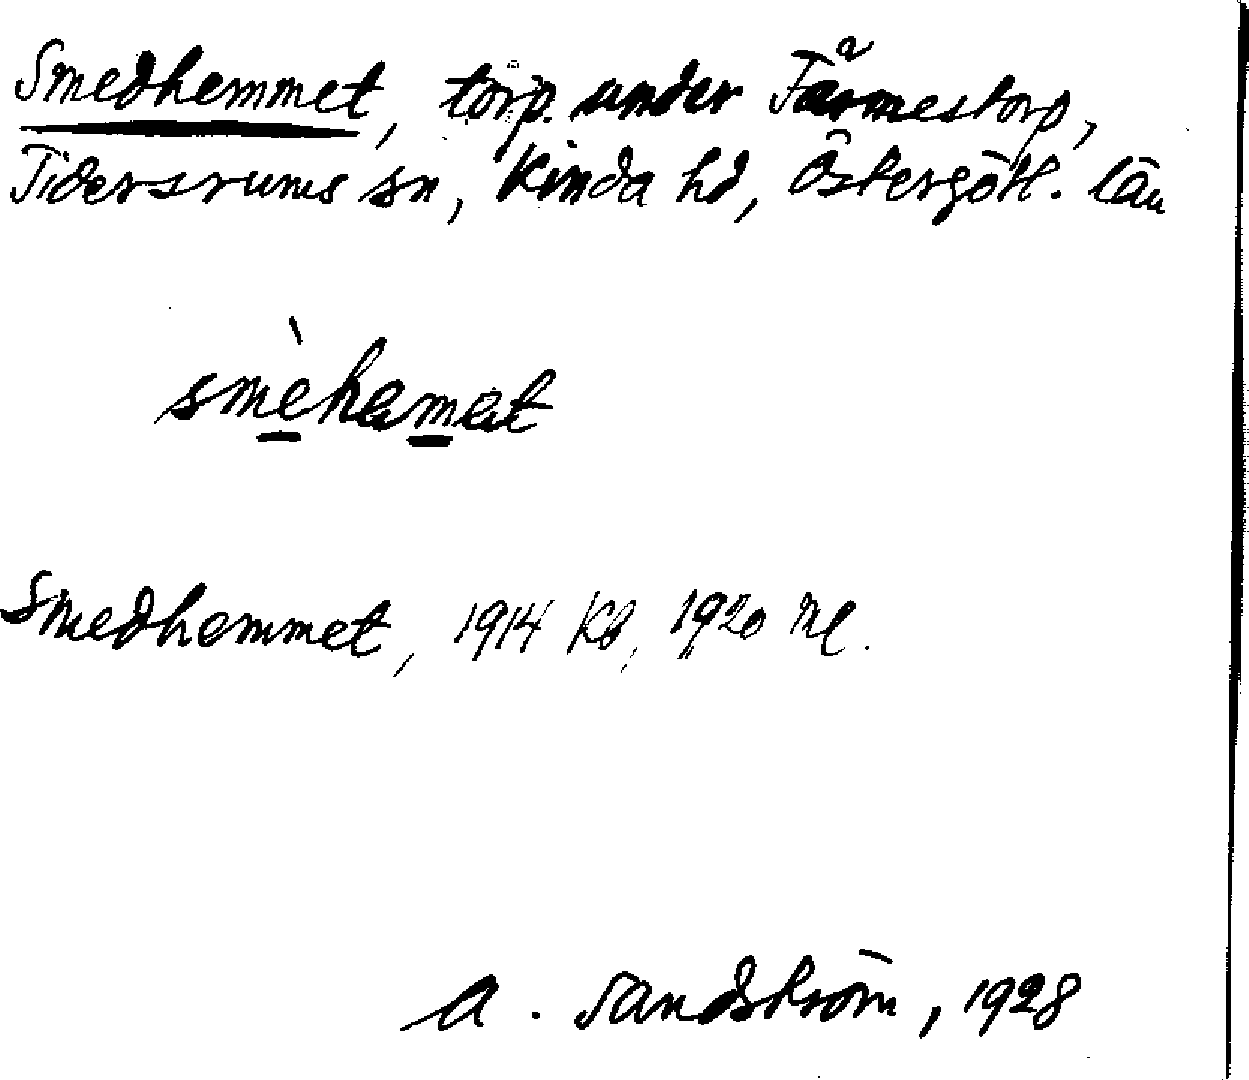 Smedhemmet, torp under Tåmestorp,
Tidersrums sn, Kinda hd, Östergötl. län
smèhemet
Smedhemmet, 1914 Kb, 1920 Ml.
A. Sandström, 1928